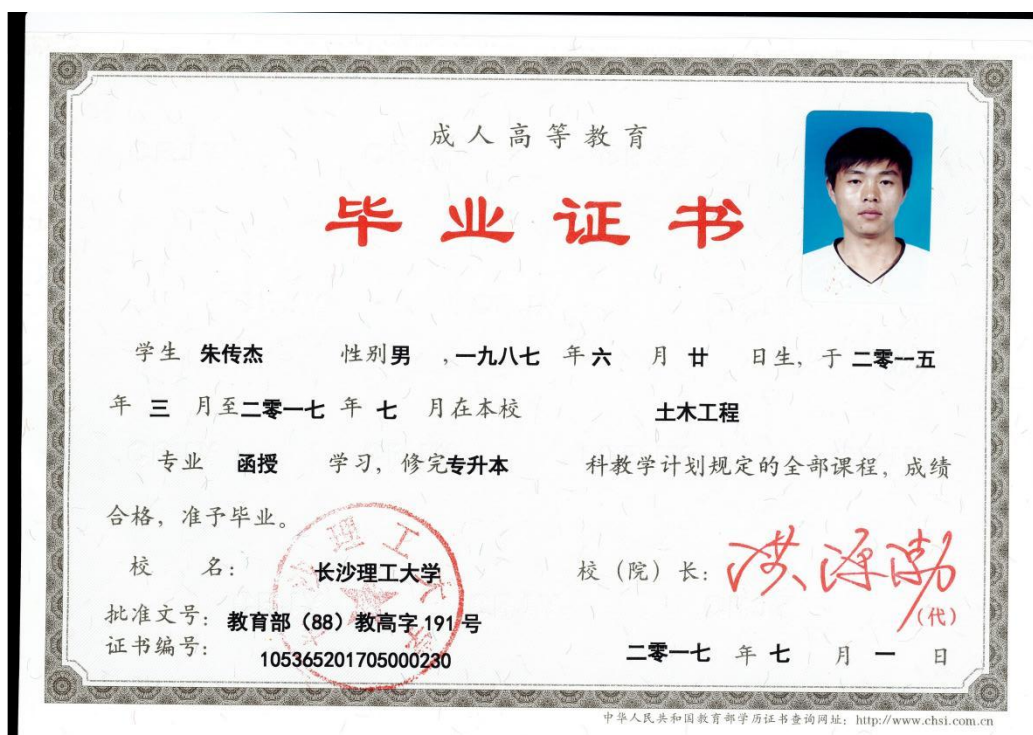 成人高等教育
毕业证书
学生 朱传杰 性别 男 ,一九八七 年 六 月 廿 日生, 于 二零一五
年 三 月至 二零一七 年 七 月在本校 土木工程
专业 函授 学习, 修完 专升本 科教学计划规定的全部课程, 成绩
合格, 准予毕业。
校 名: 长沙理工大学 校(院)长: 洪源渤
(代)
批准文号: 教育部(88)教高字 191 号
证书编号: 105365201705000230 二零一七 年 七 月 一 日
长沙理工大学
中华人民共和国教育部学历证书查询网址: http://www.chsi.com.cn